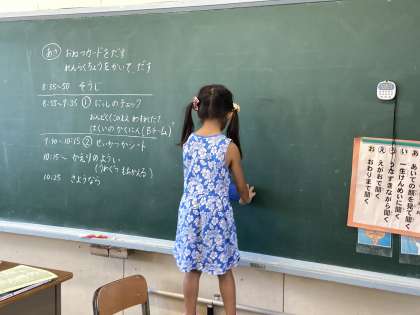 あさ おねつカードをだす
れんらくちょうをかいて だす
8:35~50 そうじ
8:55~9:35 ① にっしのチェック
おんどく
はくいのかくにん(Bチーム)
9:50~10:15 ② せいかつかシート
10:15~ かえりのようい
10:25 さようなら
あいての顔を見て聞く
い
一生けんめいに聞く
う
うなずきながら聞く
え
えがおで聞く
お
おわりまで聞く